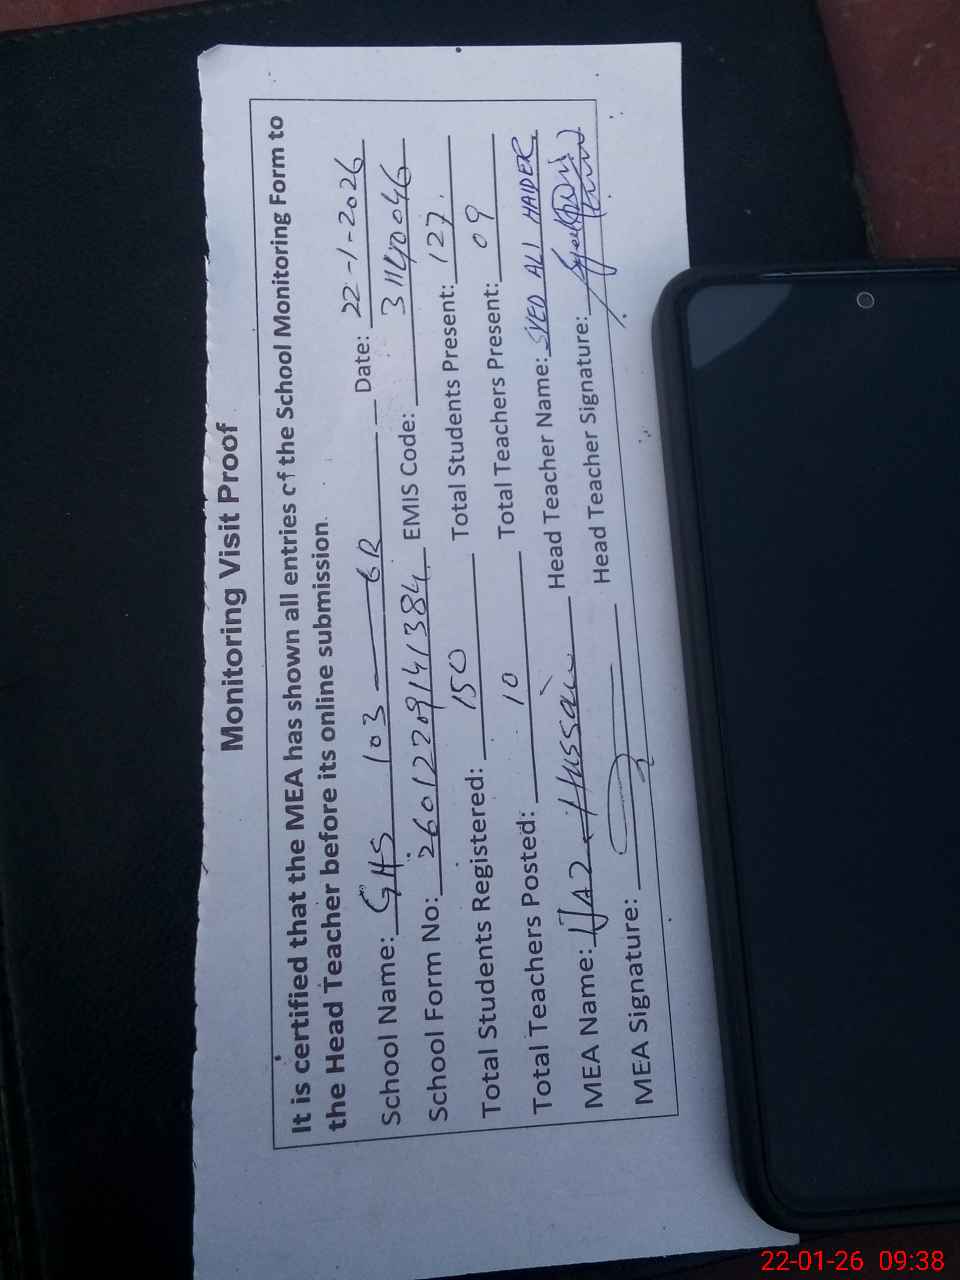 Monitoring Visit Proof
It is certified that the MEA has shown all entries of the School Monitoring Form to
the Head Teacher before its online submission.
School Name: GHS 103 — 6R Date: 22-1-2026
School Form No: 2601220914 1384 EMIS Code: 31140046
Total Students Registered: 150 Total Students Present: 127.
Total Teachers Posted: 10 Total Teachers Present: 09
MEA Name: IJAZ Hussain Head Teacher Name: SYED ALI HAIDER
MEA Signature: Head Teacher Signature:
22-01-26 09:38